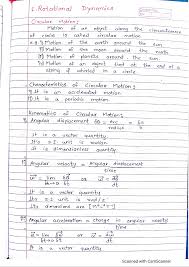 1. Rotational Dynamics
Circular Motion:
Motion of an object along the circumference
of circle is called circular motion.
e.g. i) Motion of the earth around the sun.
ii) Motion of the moon around the earth.
iii) Motion of planets around the sun.
iv) Motion of an object tied at the end of a
string if whirled in a circle.
Characteristics of Circular Motion:
i) It is an accelerated motion.
ii) It is a periodic motion.
Kinematics of Circular Motion:
Angular displacement
It is a vector quantity.
Its S.I. unit is radian.
It is dimensionless quantity.
Angular velocity = Angular displacement
time
It is a vector quantity.
Its S.I. unit is rad/s.
Its dimensions are
Angular acceleration = change in angular velocity
time
It is a vector quantity
Scanned with CamScanner